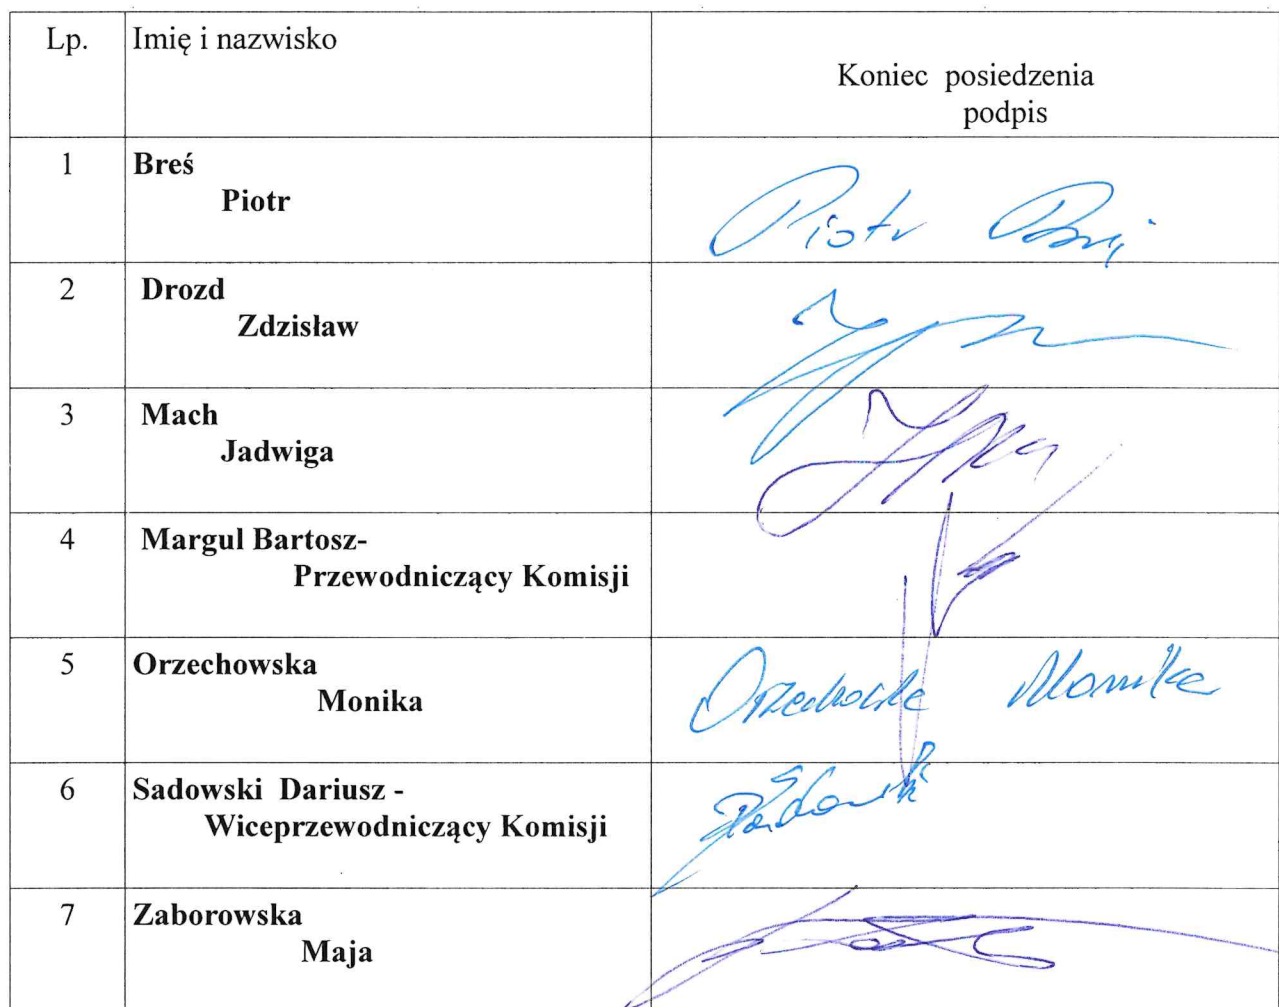 Lp. Imię i nazwisko
Koniec posiedzenia
podpis
1 Breś
Piotr
Piotr Breś
2 Drozd
Zdzisław
3 Mach
Jadwiga
4 Margul Bartosz-
Przewodniczący Komisji
5 Orzechowska
Monika
Orzechowska Monika
6 Sadowski Dariusz -
Wiceprzewodniczący Komisji
7 Zaborowska
Maja